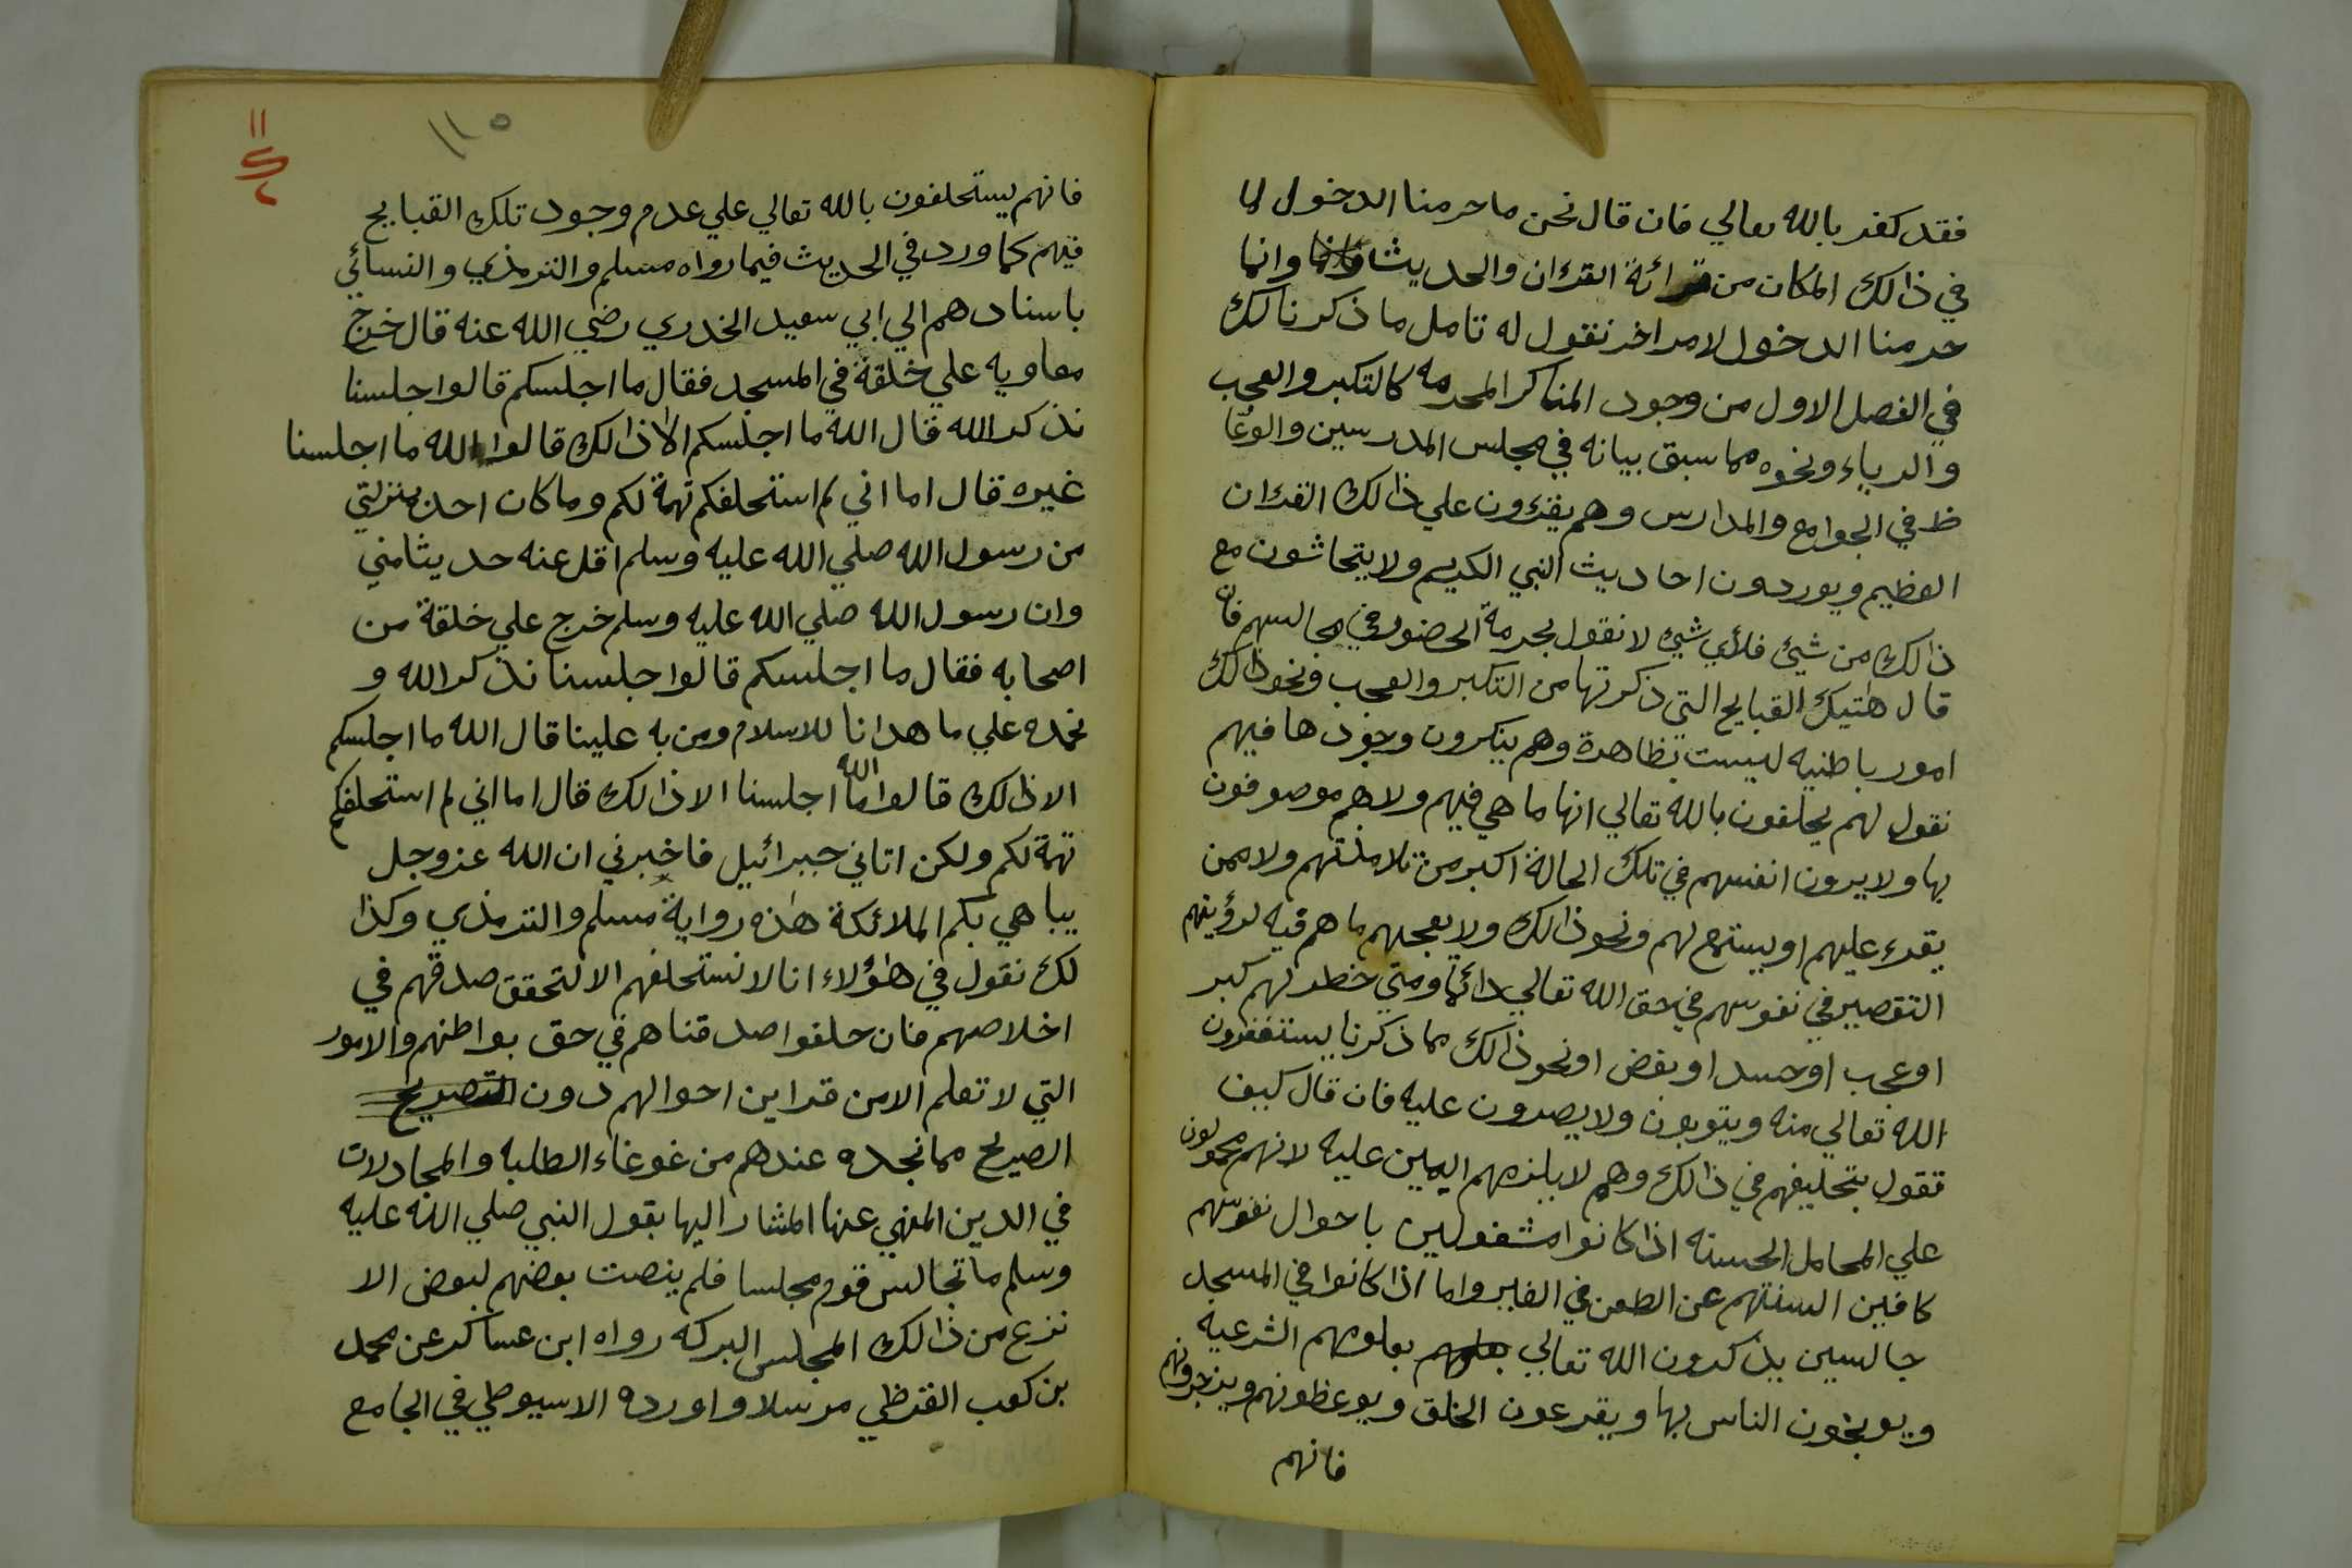 فقد كفر بالله تعالي فان قال نحن ما حرمنا الدخول لما
في ذالك المكان من قرائة القرءان والحديث وانما
حرمنا الدخول لامر اخر نقول له تامل ما ذكرنا لك
في الفصل الاول من وجود المناكر المحرمه كالتكبر والعجب
والرياء ونحوه مما سبق بيانه في مجلس المدرسين والوعّا
ظ في الجوامع والمدارس وهم يقرؤن علي ذالك القرءان
العظيم ويوردون احاديث النبي الكريم ولا يتحاشون مع
ذالك من شيئ فلأي شيئ لا نقول بحرمة الحضور في مجالسهم فان
قال هتيك القبايح التي ذكرتها من التكبر والعجب ونحو ذالك
امور باطنيه ليست بظاهرة وهم ينكرون وجودها فيهم
نقول لهم يحلفون بالله تعالي انها ما هي فيهم ولا هم موصوفون
بها ولا يرون انفسهم في تلك الحالة اكبر من تلامذتهم ولا ممن
يقرء عليهم او يستمع لهم ونحو ذالك ولا يعجبهم ما هم فيه لرؤيتهم
التقصير في نفوسهم في حق الله تعالي دائما ومتي خطر لهم كبر
او عجب او حسد او بغض او نحو ذالك مما ذكرنا يستغفرون
الله تعالي منه ويتوبون ولا يصرون عليه فان قال كيف
تقول بتحليفهم في ذالك وهم لا يلزمهم اليمين عليه لانهم محمولون
علي المحامل الحسنه اذا كانوا مشغولين باحوال نفوسهم
كافين السنتهم عن الطعن في الغير واما اذا كانوا في المسجد
جالسين يذكرون الله تعالي بعلومهم الشرعيه
ويوبخون الناس بها ويقرعون الخلق ويوعظونهم ويزجرونهم
فانهم
١١٥
فانهم يستحلفون بالله تعالي علي عدم وجود تلك القبايح
فيهم كما ورد في الحديث فيما رواه مسلم والترمذي والنسائي
باسنادهم الي ابي سعيد الخدري رضي الله عنه قال خرج
معاويه علي خلقة في المسجد فقال ما اجلسكم قالوا جلسنا
نذكر الله قال الله ما اجلسكم الا ذالك قالوا الله ما اجلسنا
غيره قال اما اني لم استحلفكم تهمة لكم وما كان احد بمنزلتي
من رسول الله صلي الله عليه وسلم اقل عنه حديثا مني
وان رسول الله صلي الله عليه وسلم خرج علي خلقة من
اصحابه فقال ما اجلسكم قالوا جلسنا نذكر الله و
نحمده علي ما هدانا للاسلام ومن به علينا قال الله ما اجلسكم
الا ذالك قالوا الله ما اجلسنا الا ذالك قال اما اني لم استحلفكم
تهمة لكم ولكن اتاني جبرائيل فاخبرني ان الله عز وجل
يباهي بكم الملائكة هذه رواية مسلم والترمذي وكذا
لك نقول في هؤلاء انا لا نستحلفهم الا لتحقق صدقهم في
اخلاصهم فان حلفوا صدقناهم في حق بواطنهم والامور
التي لا تعلم الا من قراين احوالهم دون التصريح
الصريح مما نجده عندهم من غوغاء الطلبه والمجادلات
في الدين المنهي عنها المشار اليها بقول النبي صلي الله عليه
وسلم ما تجالس قوم مجلسا فلم ينصت بعضهم لبعض الا
نزع من ذالك المجلس البركه رواه ابن عساكر عن محمد
بن كعب القرظي مرسلا واورده الاسيوطي في الجامع